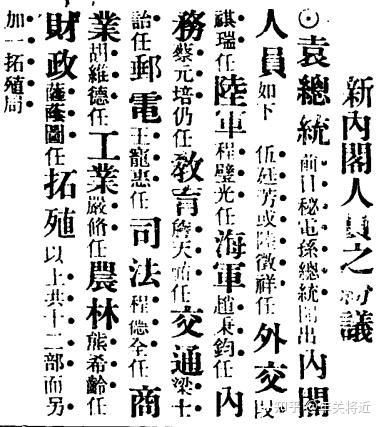 新內閣人員之議
⊙袁總統前日秘電孫總統開出內閣
人員如下 伍廷芳或陸徵祥任外交段
祺瑞任陸軍程璧光任海軍趙秉鈞任內
務蔡元培仍任教育詹天佑任交通梁士
詒任郵電王寵惠任司法程德全任商
業胡維德任工業嚴脩任農林熊希齡任
財政薩蔭圖任拓殖以上共十二部而另
加一拓殖局
知乎 @关将近